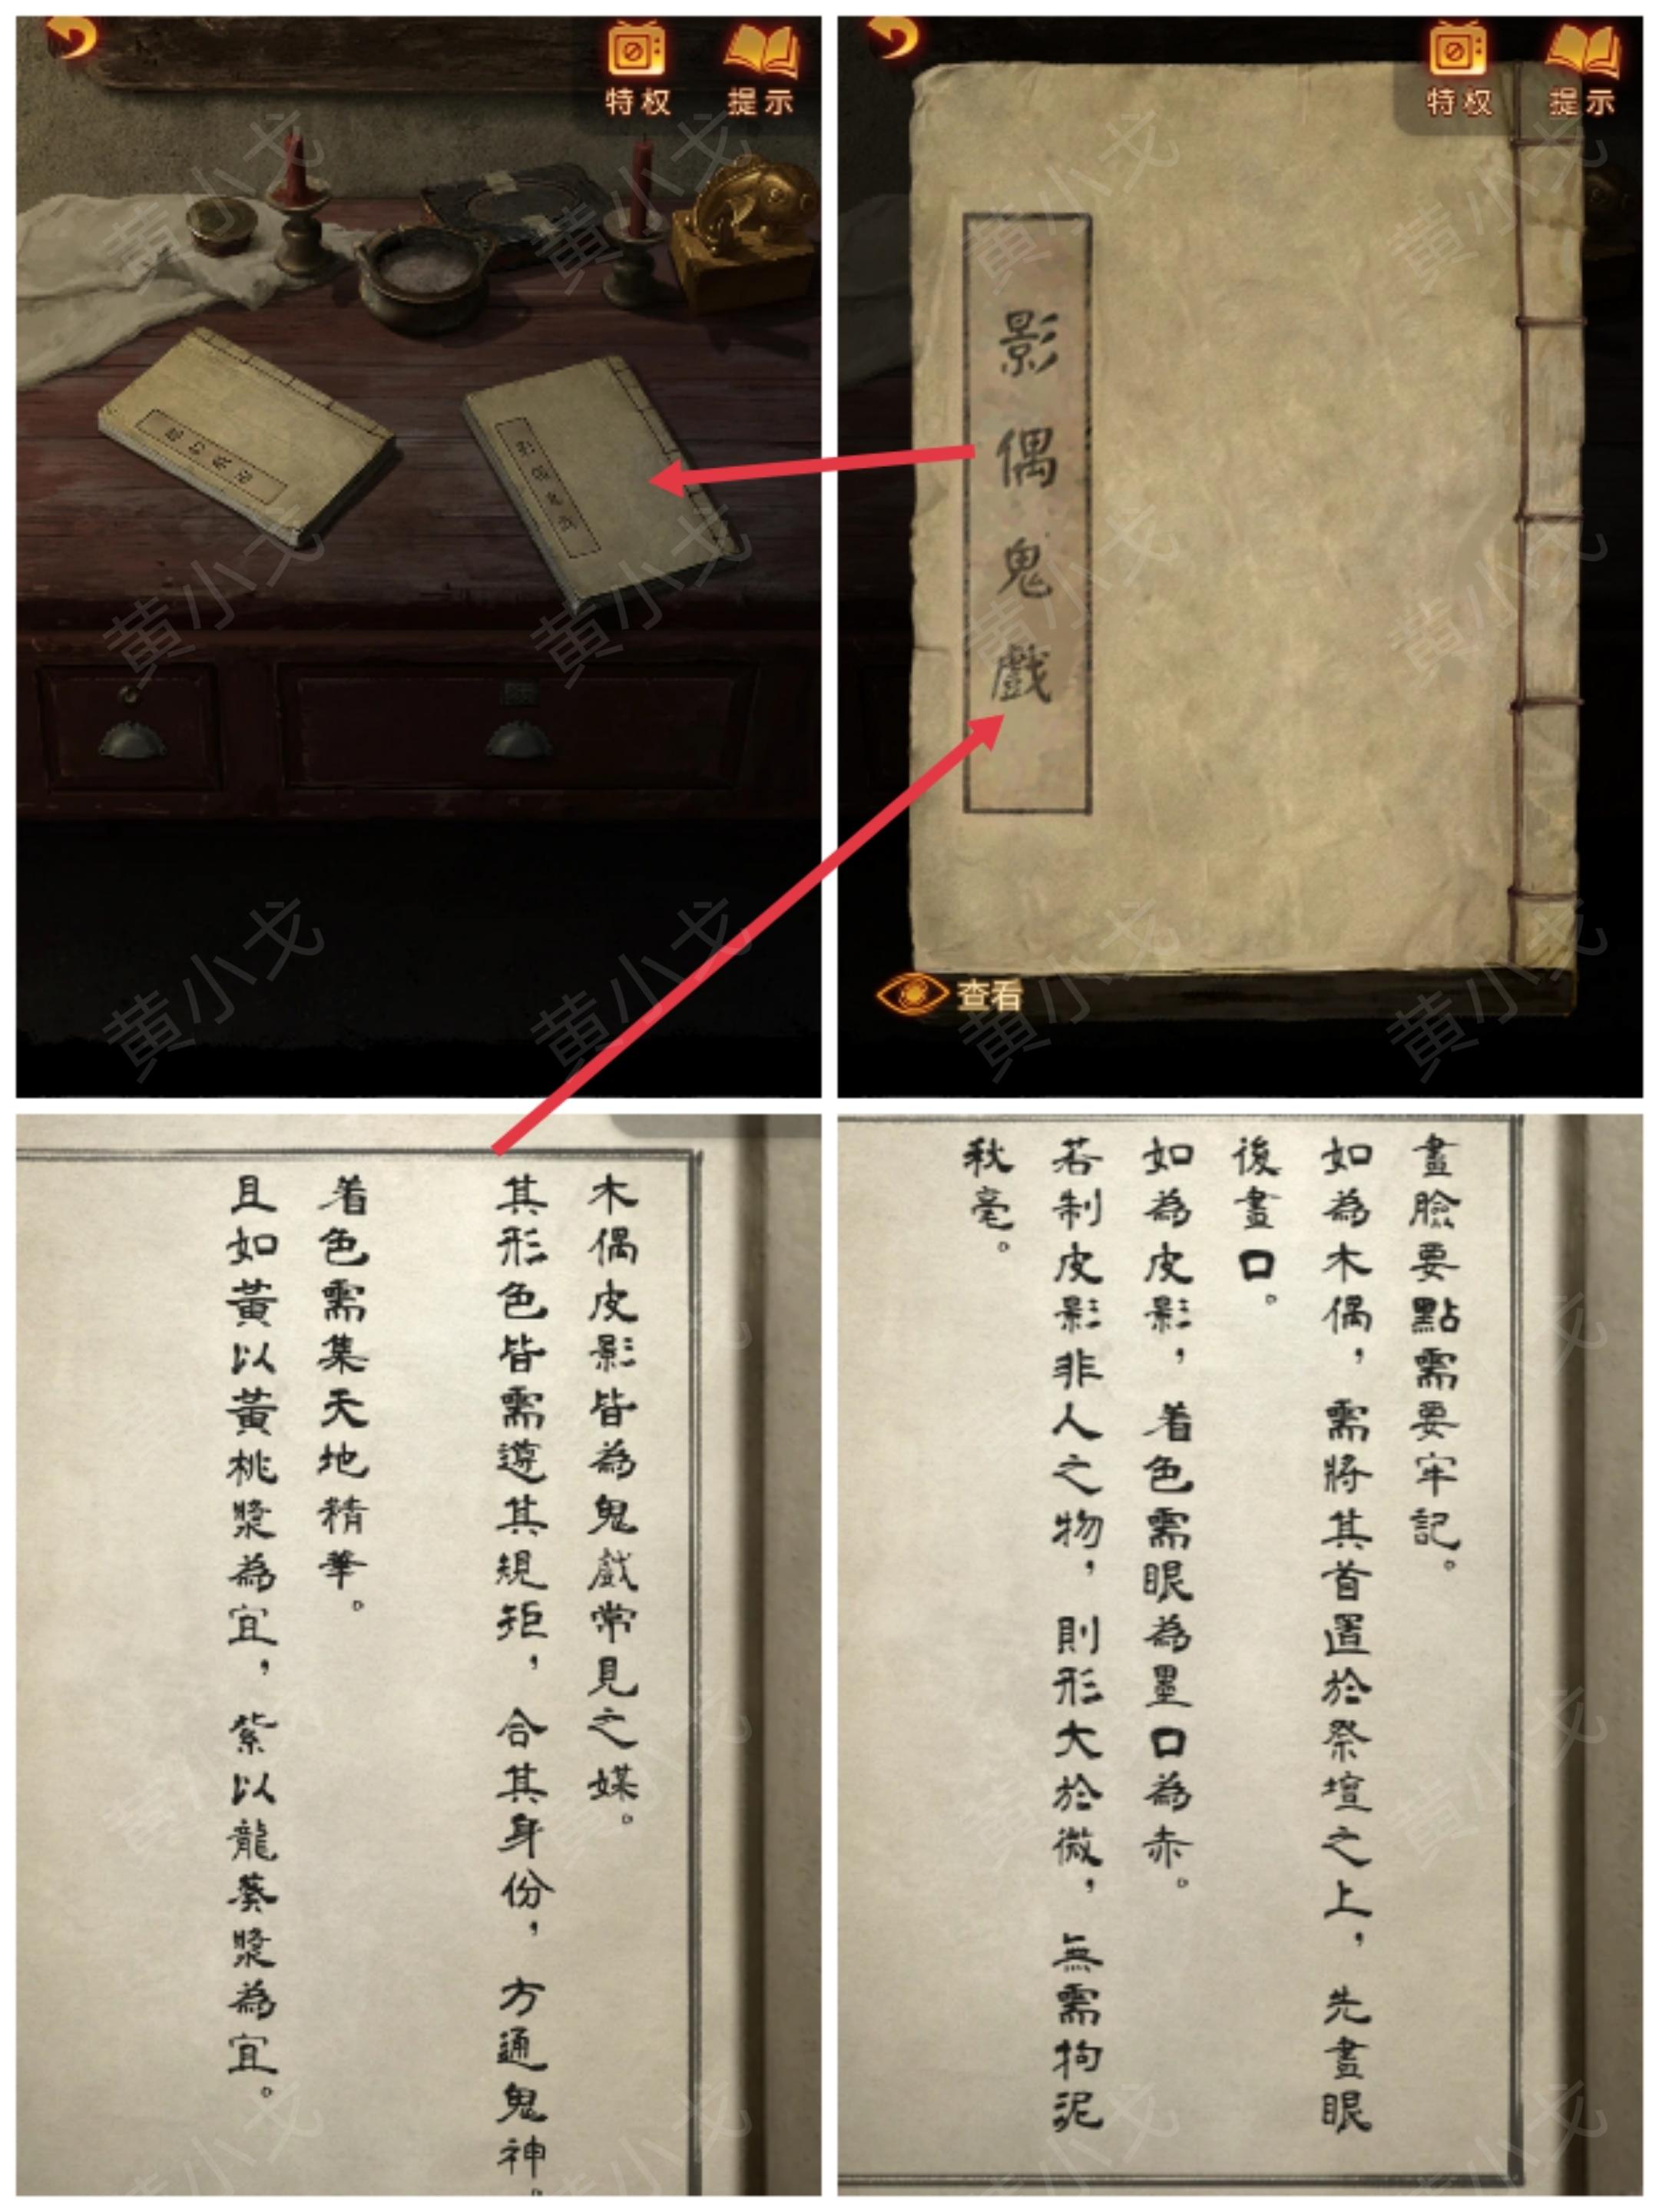 特权
提示
特权
提示
影偶鬼戲
查看
木偶皮影皆為鬼戲常見之媒。
其形色皆需遵其規矩，合其身份，方通鬼神。
着色需集天地精華。
且如黃以黃桃漿為宜，紫以龍葵漿為宜。
畫臉要點需要牢記。
如為木偶，需將其首置於祭壇之上，先畫眼
後畫口。
如為皮影，着色需眼為墨口為赤。
若制皮影非人之物，則形大於微，無需拘泥
秋毫。
黄小戈